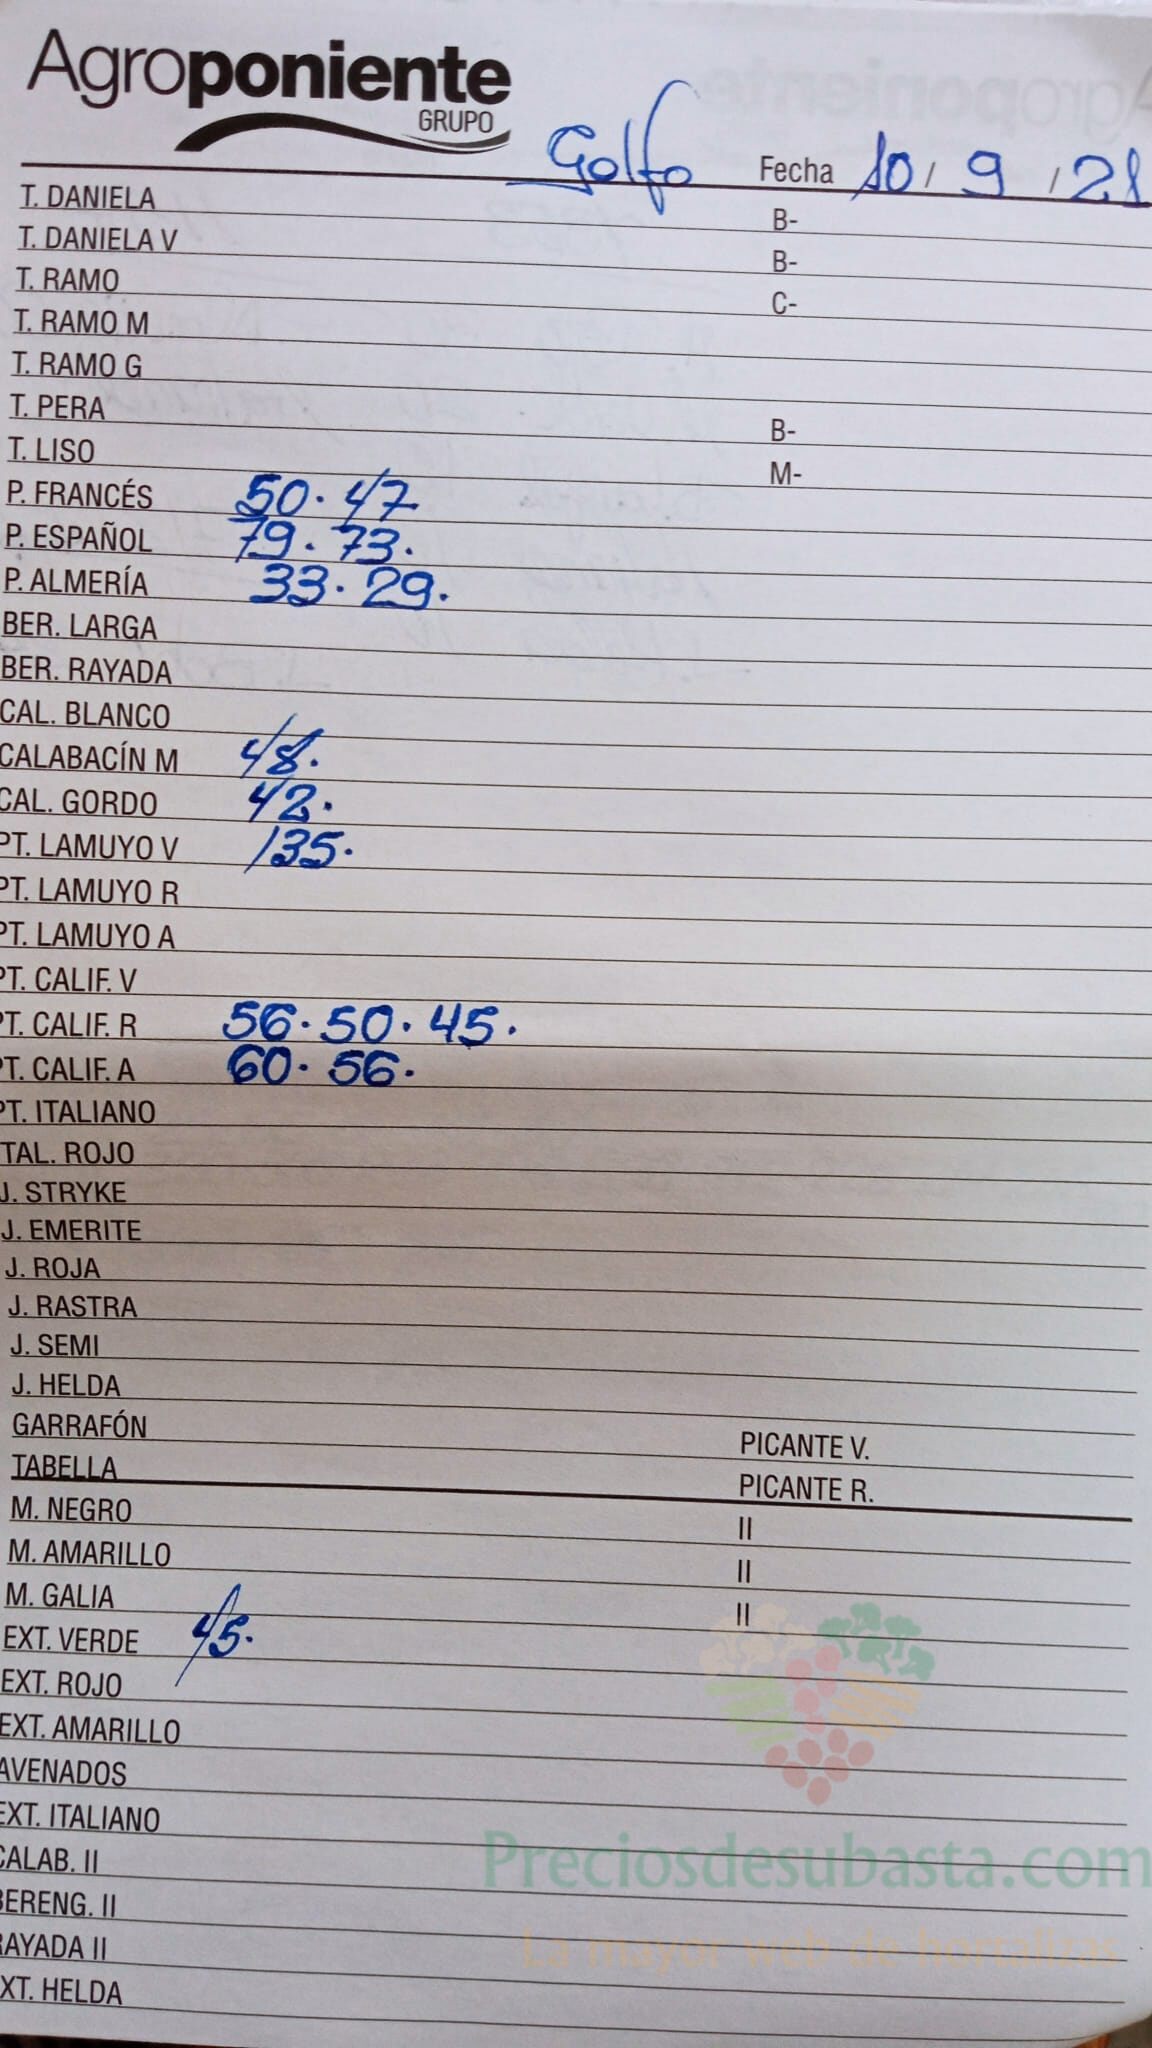 Agroponiente
GRUPO
Golfo Fecha 10/ 9 /21
T. DANIELA B-
T. DANIELA V B-
T. RAMO C-
T. RAMO M
T. RAMO G
T. PERA B-
T. LISO M-
P. FRANCÉS 50. 47
P. ESPAÑOL 79. 73.
P. ALMERÍA 33. 29.
BER. LARGA
BER. RAYADA
CAL. BLANCO
CALABACÍN M 48.
CAL. GORDO 42.
PT. LAMUYO V 135.
PT. LAMUYO R
PT. LAMUYO A
PT. CALIF. V
PT. CALIF. R 56. 50. 45.
PT. CALIF. A 60. 56.
PT. ITALIANO
TAL. ROJO
J. STRYKE
J. EMERITE
J. ROJA
J. RASTRA
J. SEMI
J. HELDA
GARRAFÓN PICANTE V.
TABELLA PICANTE R.
M. NEGRO II
M. AMARILLO II
M. GALIA II
EXT. VERDE 45.
EXT. ROJO
EXT. AMARILLO
AVENADOS
EXT. ITALIANO
CALAB. II
BERENG. II
RAYADA II
XT. HELDA
Preciosdesubasta.com
La mayor web de hortalizas